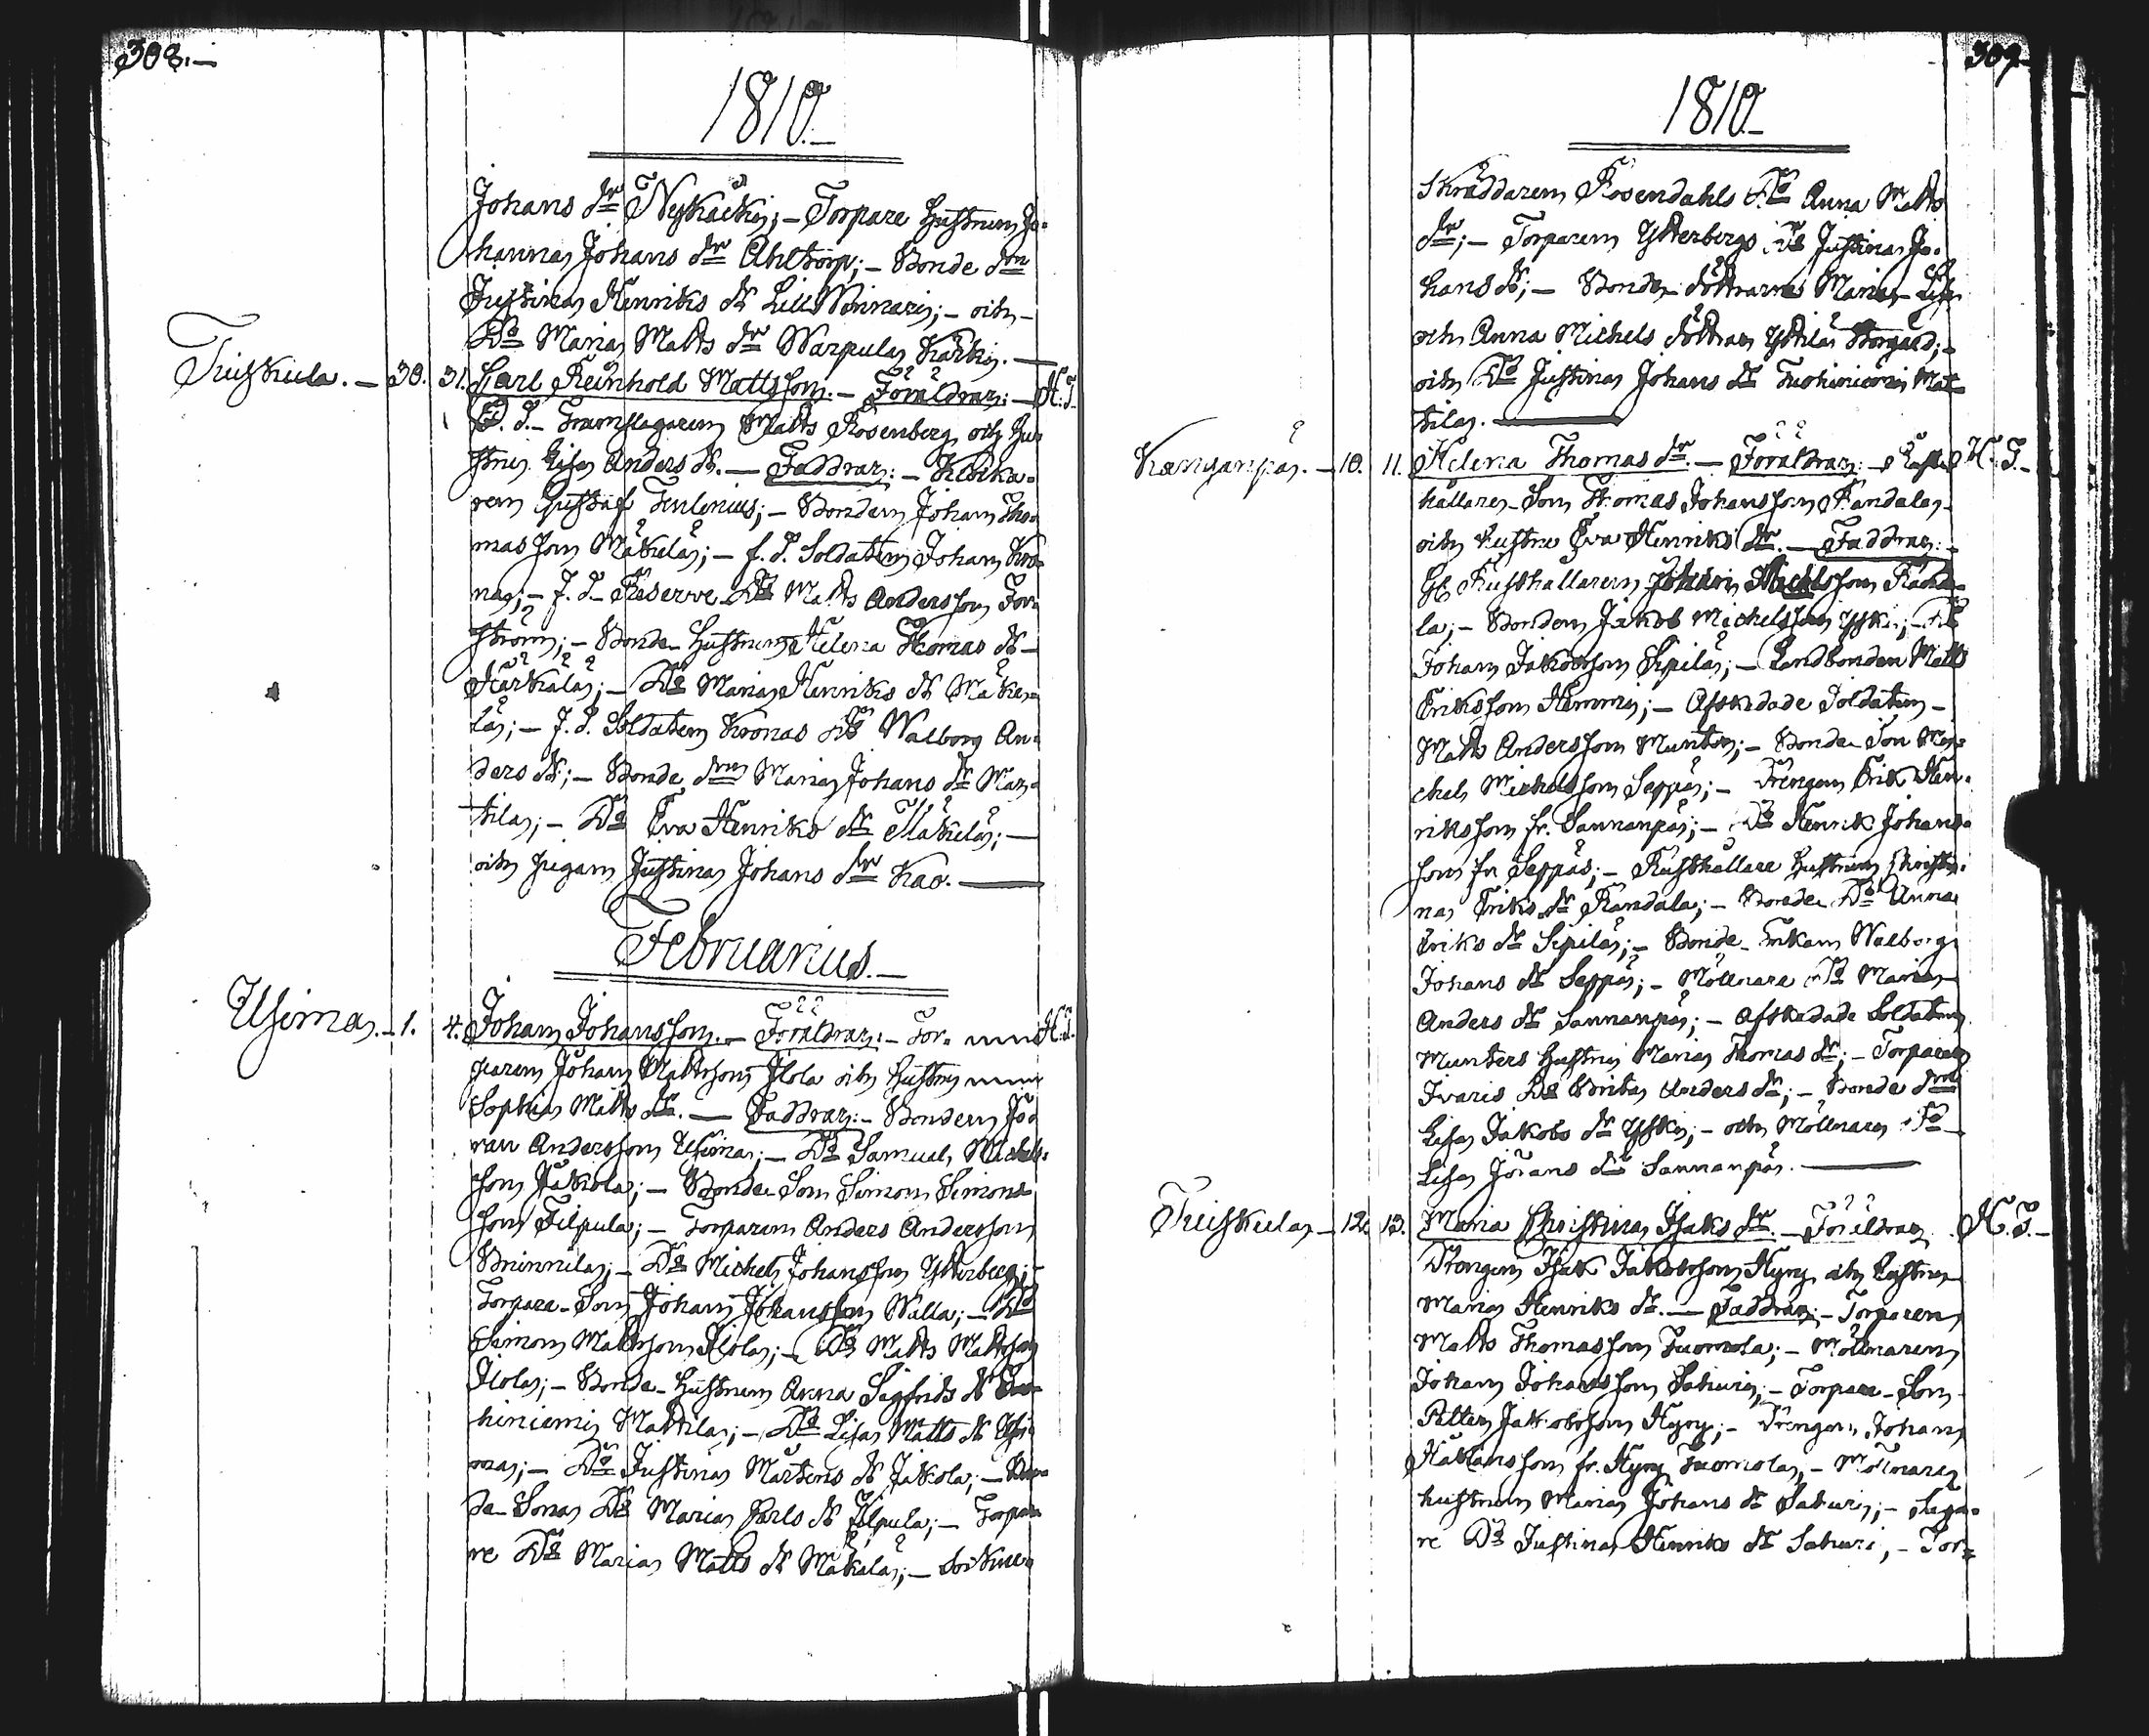 308.-
1810.-
Johans dr Nyskäcki; - Torpare Hustrun Jo-
hanna Johans dr Ahltorp; - Bonde drn
Justina Henriks dr Lill Winnari; - och
Do Maria Matts dr Warpula Karki.
Tuiskula. - 30. 31. Carl Reinhold Mattsson. - Föräldrar: - H. T.
F. d. Trumslagaren Matts Rosenberg och Hu-
stru Lisa Anders dr. - Faddrar: - Klocka-
ren Gustaf Tenlenius; - Bonden Johan Tho-
mas son Mäkelä; - f. d. Soldaten Johan Kro-
nag; - f. d. Reserve Do Matts Andersson For-
ström; - Bonde Hustrun Helena Thomas dr
Kärkälä; - Do Maria Henriks dr Mäke-
lä; - f. d. Soldaten Kronas Do Walborg An-
ders dr; - Bonde drn Maria Johans dr Mar-
tila; - Do Eva Henriks dr Mäkelä; -
och pigan Justina Johans dr Kao.
Februarius.-
Uhima. - 1. 4. Johan Johansson. - Föräldrar: - Tor- H. T.
paren Johan Mattsson Ilola och Hustru
Sophia Matts dr. - Faddrar: - Bonden Jö-
ran Andersson Uhima; - Do Samuel Michels-
son Jäkola; - Bonde Son Simon Simons
son Filpula; - Torparen Anders Andersson
Brinnila; - Do Michel Johansson Ytterberg; -
Torpare-Son Johan Johansson Walla; - Do
Simon Mattsson Ilola; - Do Matts Mattsson
Ilola; - Bonde-Hustrun Anna Sigfrids dr Tuo-
hiniemi Mattila; - Do Lisa Matts dr Uhi-
ma; - Do Justina Mårtens dr Jäkola; - Bon-
de-Sonas Do Maria Carls dr Filpula; - Torpa-
re Do Maria Matts dr Mäkälä; - Sockne-
309
1810.-
Skräddaren Rosendahls Do Anna Matts
dr; - Torparen Ytterbergs Do Justina Jo-
hans dr; - Bonde-döttrarne Maria Lisa
och Anna Michels döttrar Yttilä Storgård; -
och Do Justina Johans dr Tuohiniemi Mat-
tila.
Kanganpää. - 10. 11. Helena Thomas dr. - Föräldrar: - Rust- H. T.-
hållare-Son Thomas Johansson Randala
och hustru Eva Henriks dr. - Faddrar: -
Rusthållaren Johan Michelsson Randa-
la; - Bonden Jakob Michelsson Yski; - Do
Johan Jakobsson Sipilä; - Landbonden Matts
Eriksson Hemmi; - Afskedade Soldaten -
Matts Andersson Munter; - Bonde Son Mi-
chel Michelsson Seppä; - Drengen Erik Hen-
riksson fr. Sannanpää; - Do Henrik Johans-
son fr. Seppä; - Rusthållare Hustrun Christi-
na Eriks dr Randala; - Bonde Do Anna
Eriks dr Sipilä; - Bonde Enkan Walborg
Johans dr Seppä; - Möllnare Do Maria
Anders dr Sannanpää; - Afskedade Soldaten
Munters Hustru Maria Thomas dr; - Torparen
Ivaris Do Brita Anders dr; - Bonde drn
Lisa Jakobs dr Yski; - och Möllnaren Do
Lisa Jörans dr Sannanpää.
Tuiskula - 12. 13. Maria Christina Isaks dr. - Föräldrar H. T.-
Drengen Isak Jakobsson Kyrg och Hustru
Maria Henriks dr. - Faddrar: - Torparen
Matts Thomasson Tuomola; - Möllnaren
Johan Johansson Sahuri; - Torpare-Son
Petter Jakobsson Kyrg; - Drengen Johan
fr. Kyrg Tuomola; - Möllnare
hustrun Maria Johans dr Sahuri; - Såga-
re Do Justina Henriks dr Sahuri; - Tor-